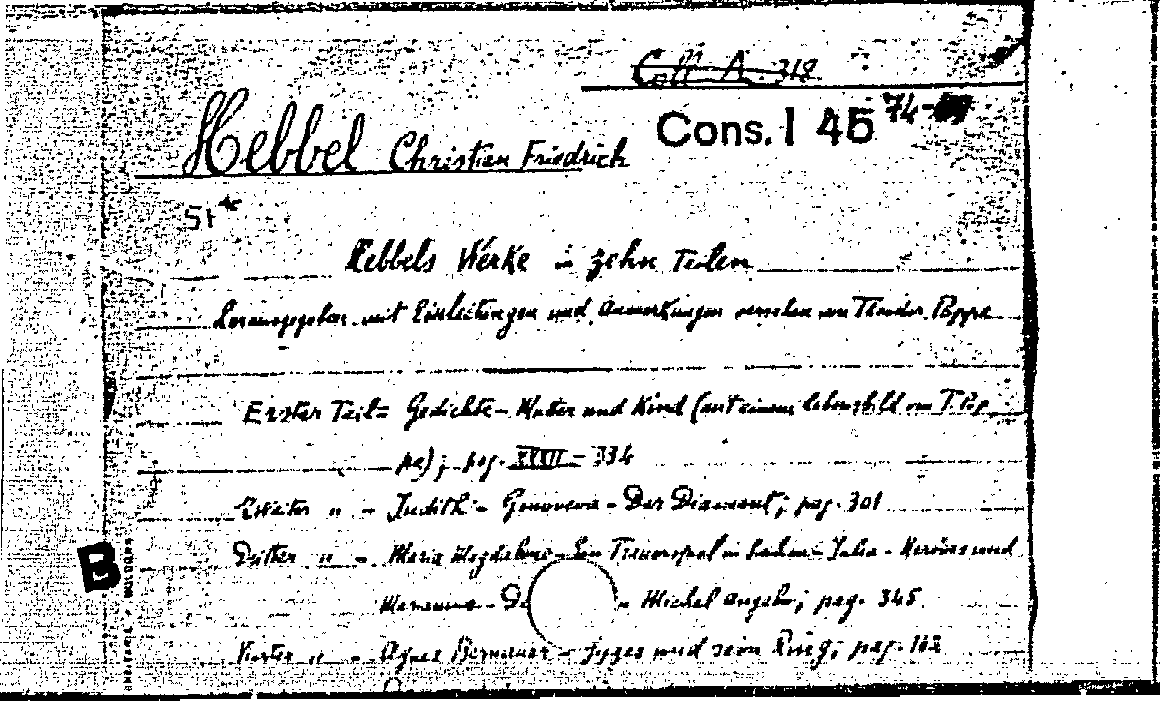 Coll. A. 318
Hebbel Christian Friedrich
Cons. I 45 74-
St
Hebbels Werke in zehn Teilen
herausgegeben mit Einleitungen und Anmerkungen versehen von Theodor Poppe
Erster Teil = Gedichte - Mutter und Kind (mit einem Lebensbild von T. Pop
pe); pag. XXXII - 334
Zweiter " - Judith - Genoveva - Der Diamant; pag. 301
Dritter " - Maria Magdalene - Ein Trauerspiel in - Julia - Herodes und
Mariamne - De Michel Angelo; pag. 345
Vierter " - Agnes Bernauer - Gyges und sein Ring; pag. 162
B